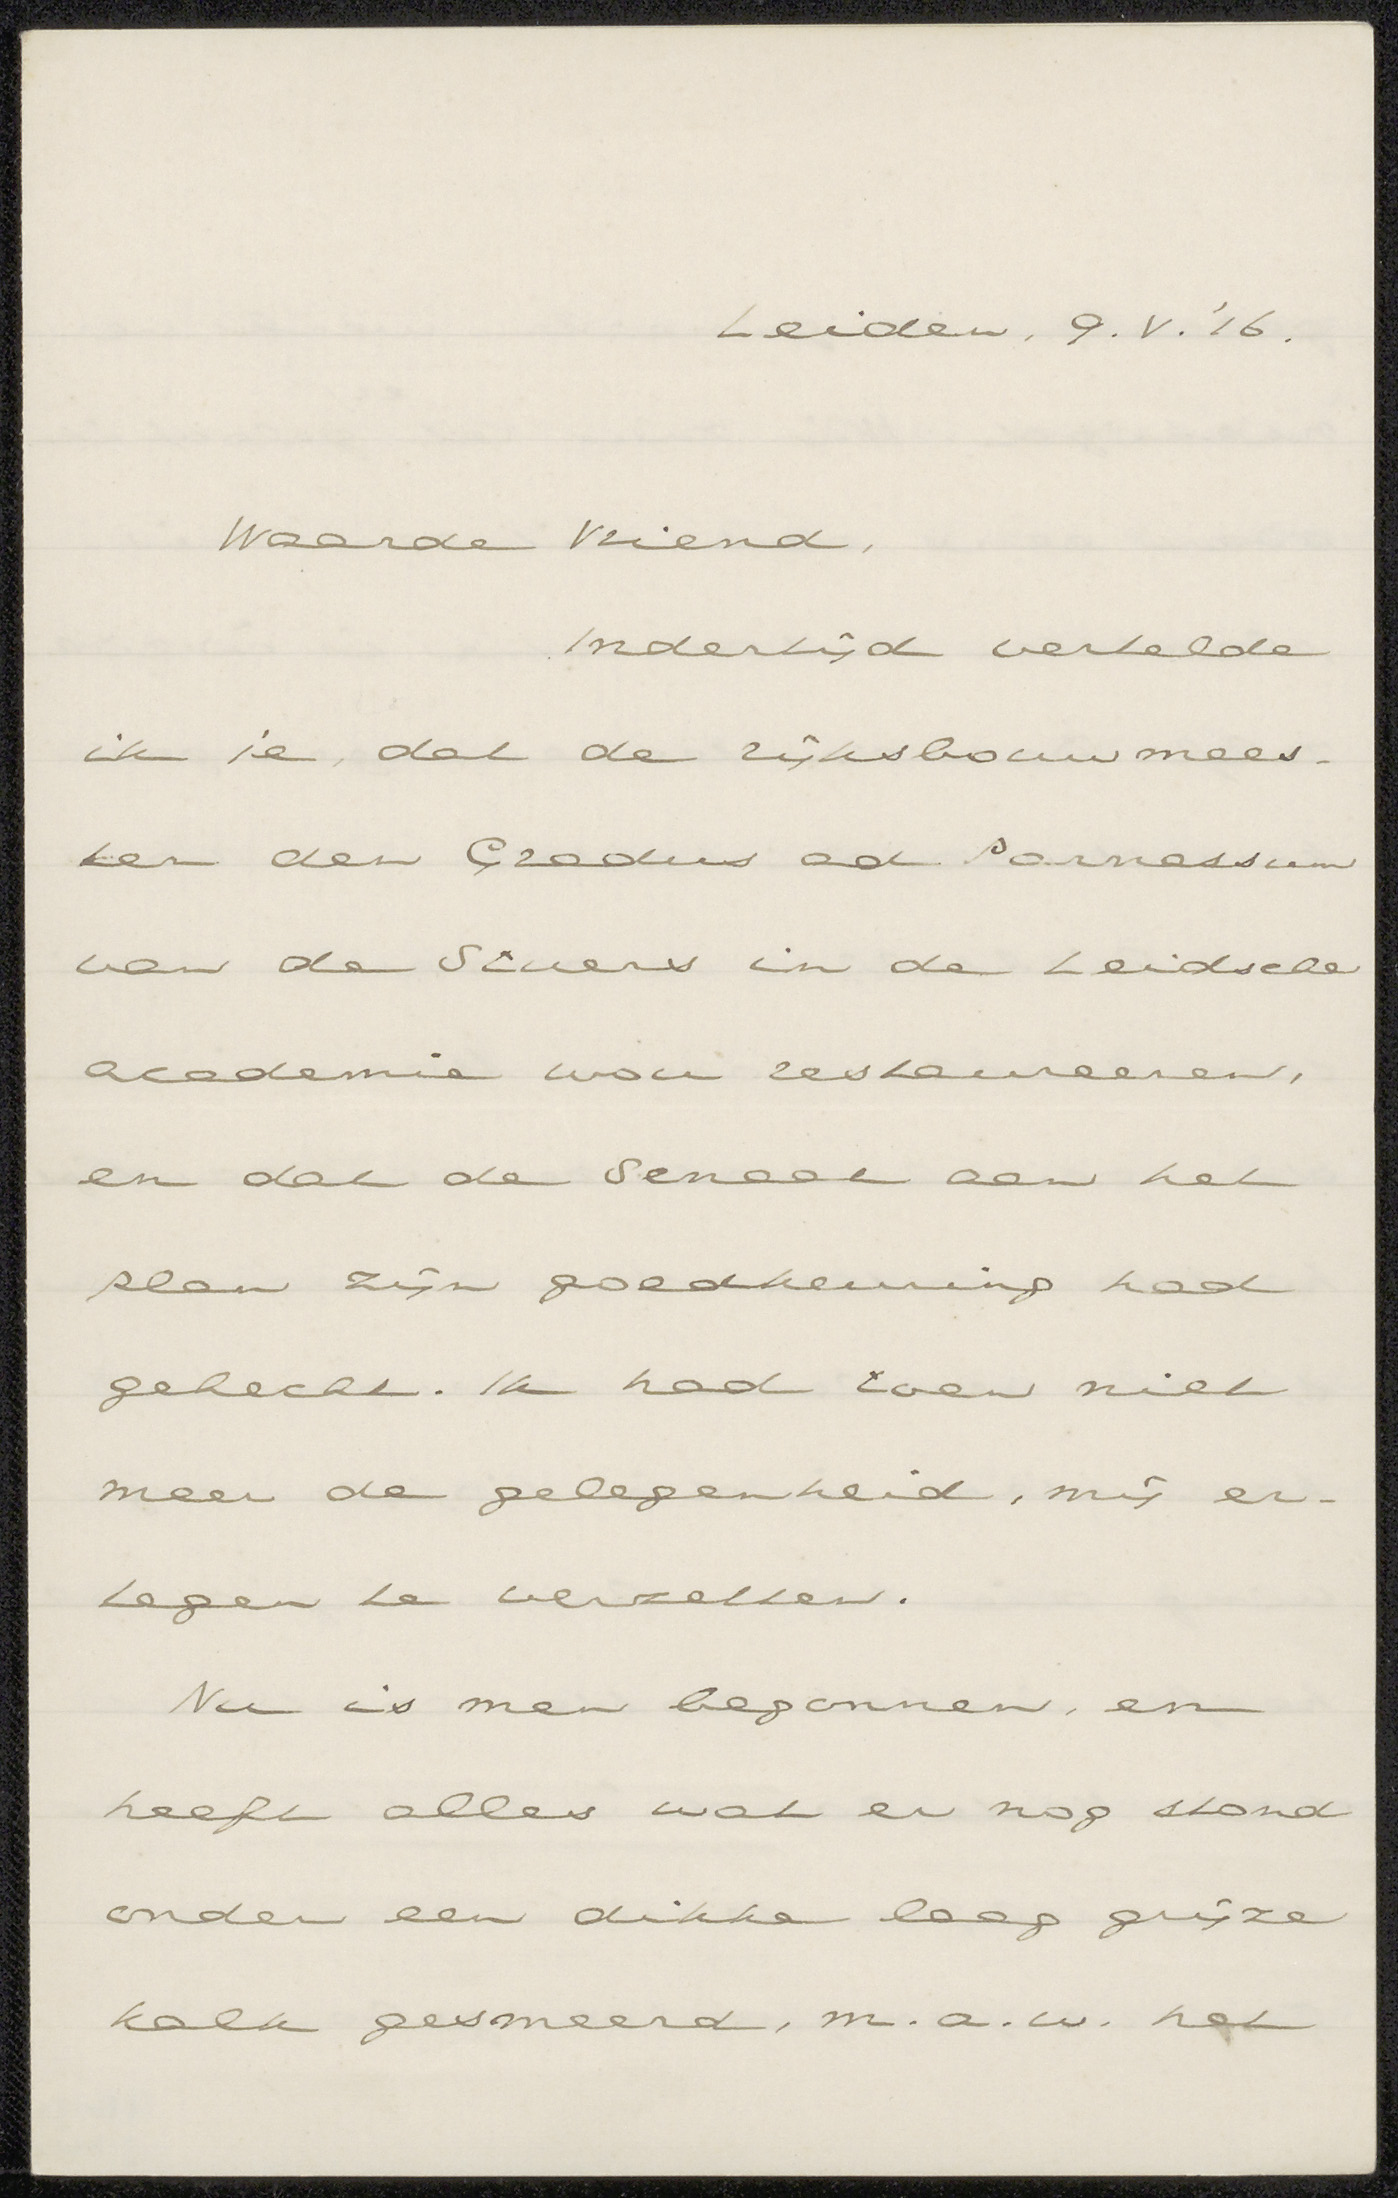 Leiden, 9.V.'16.
Waarde Vriend,
Indertijd vertelde
ik je, dat de rijksbouwmees-
ter den Gradus ad Parnassum
van de Stuers in de Leidsche
academie wou restaureeren,
en dat de Senaat aan het
plan zijn goedkeuring had
gehecht. Ik had toen niet
meer de gelegenheid, mij er-
tegen te verzetten.
Nu is men begonnen, en
heeft alles wat er nog stond
onder een dikke laag grijze
kalk gesmeerd, m.a.w. het